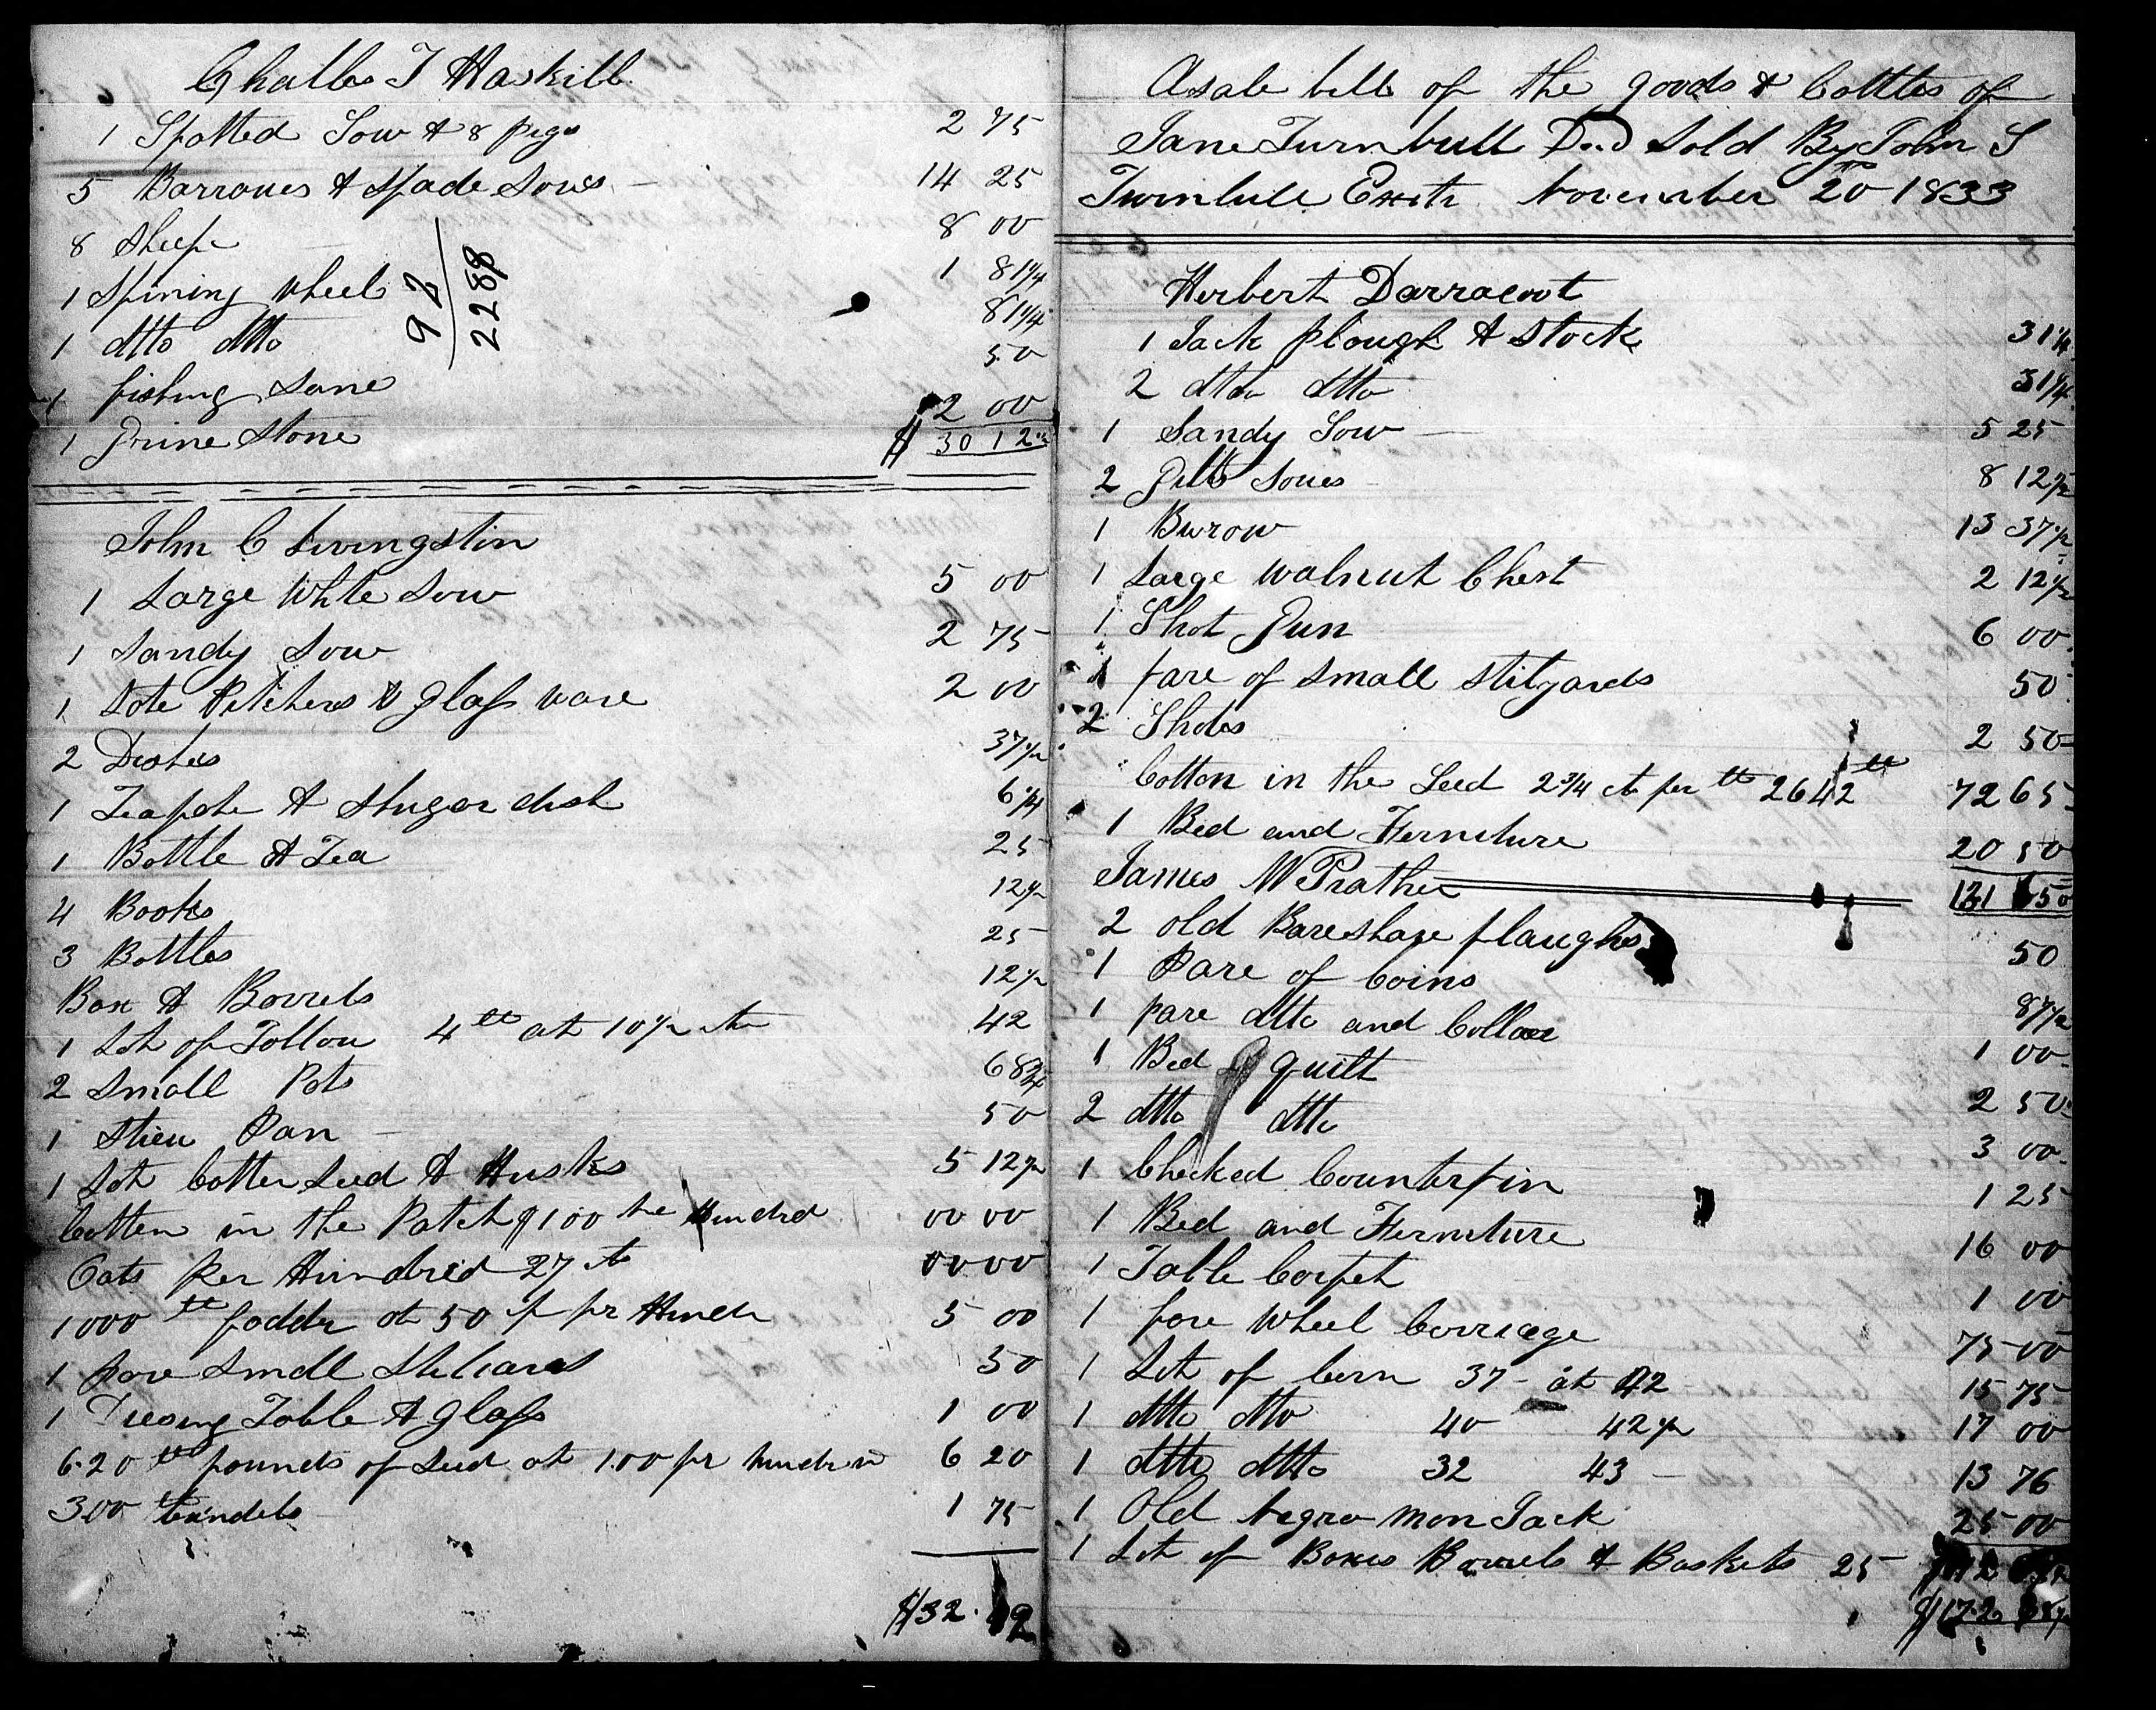 Charles T Haskill
1 Spotted Sow & 8 pigs 2 75
5 Barrowes & Spade Sows 14 25
8 Sheep 8 00
1 Spining Wheel 1 81 1/4
1 ditto ditto 81 1/4
1 fishing Sane 50
1 Grine Stone 2 00
$ 30 12 1/2
92
2288
John C Livingstin
1 Large White Sow 5 00
1 Sandy Sow 2 75
1 Lote Pitchers & Glass ware 2 00
2 Dishes 37 1/2
1 Teapote & Shugar dish 6 1/4
1 Bottle & Tea 25
4 Books 12 1/2
3 Bottles 25
Box & Barrels 12 1/2
1 Lot of Tollow 4 lb at 10 1/2 cts 42
2 Small Pots 68 3/4
1 Stieu Pan 50
1 Lot Cotten Seed & Husks 5 12 1/2
Cotten in the Patch $1 00 the Hundrd 00 00
Oats Per Hundred 27 cts 00 00
1000 lb foddr at 50 c pr Hundr 5 00
1 Pare Small 50
1 Dresing Table & Glass 1 00
620 lb pounds of Seed at 1.00 pr hundrd 6 20
300 bundels 1 75
$32.42
A sale bill of the goods & Cattles of
Jane Turnbull Decd Sold By John S
Turnbull Exetr November 20 1833
Herbert Darracoot
1 Jack Plough & Stock 31 1/4
2 ditto ditto 31 1/4
1 Sandy Sow 5 25
2 Gilt Sowes 8 12 1/2
1 Burow 13 37 1/2
1 Large Walnut Chest 2 12 1/2
1 Shot Gun 6 00
1 pare of Small Stilyards 50
2 Shotes 2 50
Cotton in the Seed 2 3/4 ct per lb 2642 lb 72 65
1 Bed and Ferniture 20 50
James W Prather 50
2 old Bareshare plaughs 50
1 Pare of Coins 87 1/2
1 pare ditto and Collar 1 00
1 Bed quilt 2 50
2 ditto ditto 3 00
1 Checked Counterpin 1 25
1 Bed and Ferniture 16 00
1 Table Carpet 1 00
1 fore Wheel Carriage 75 00
1 Lot of Corn 37 at 42 15 75
1 ditto ditto 40 42 1/2 17 00
1 ditto ditto 32 43 13 76
1 Old Negro man Jack 25 00
1 Lot of Boxes Barrels & Baskets 25